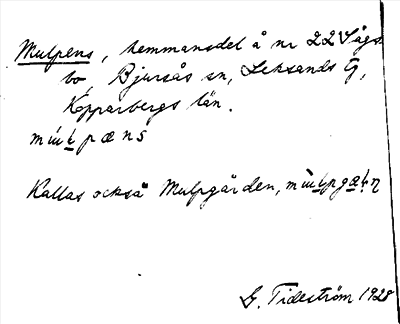 Mulpens, hemmansdel å nr 22 Sågs-
bo, Bjursås sn, Leksands G,
Kopparbergs län.
mul pæns
Kallas också Mulpgården, mulpgaɳ
G. Tideström 1928